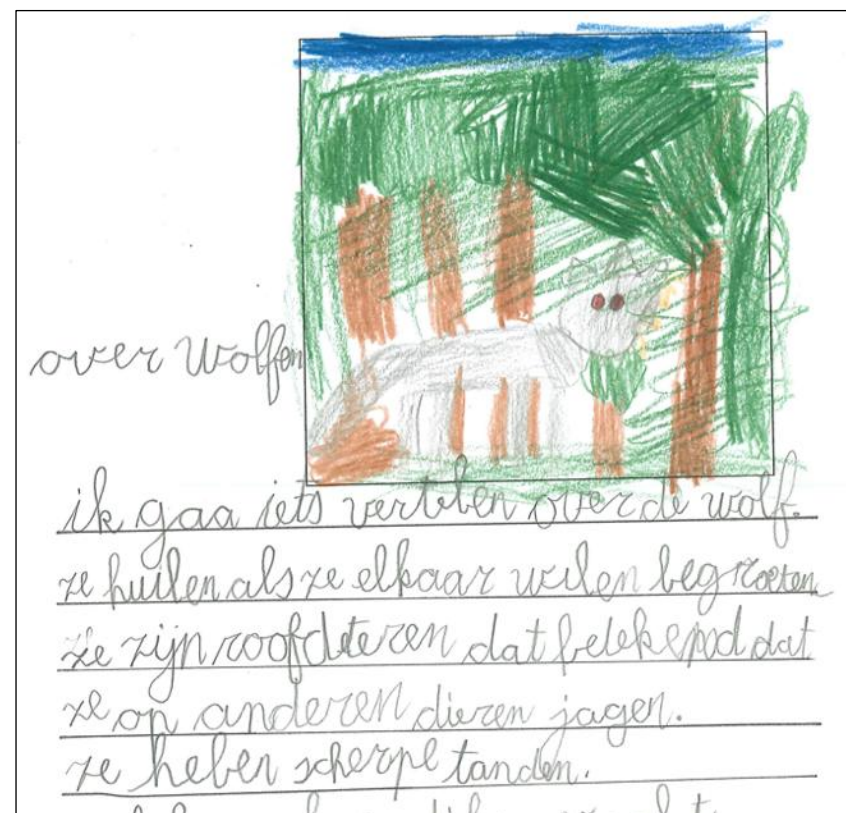 over wolfen
ik gaa iets vertelen over de wolf.
ze huilen als ze elkaar wilen begroeten
ze zijn roofdieteren dat betekend dat
ze op anderen dieren jagen.
ze heben scherpe tanden.